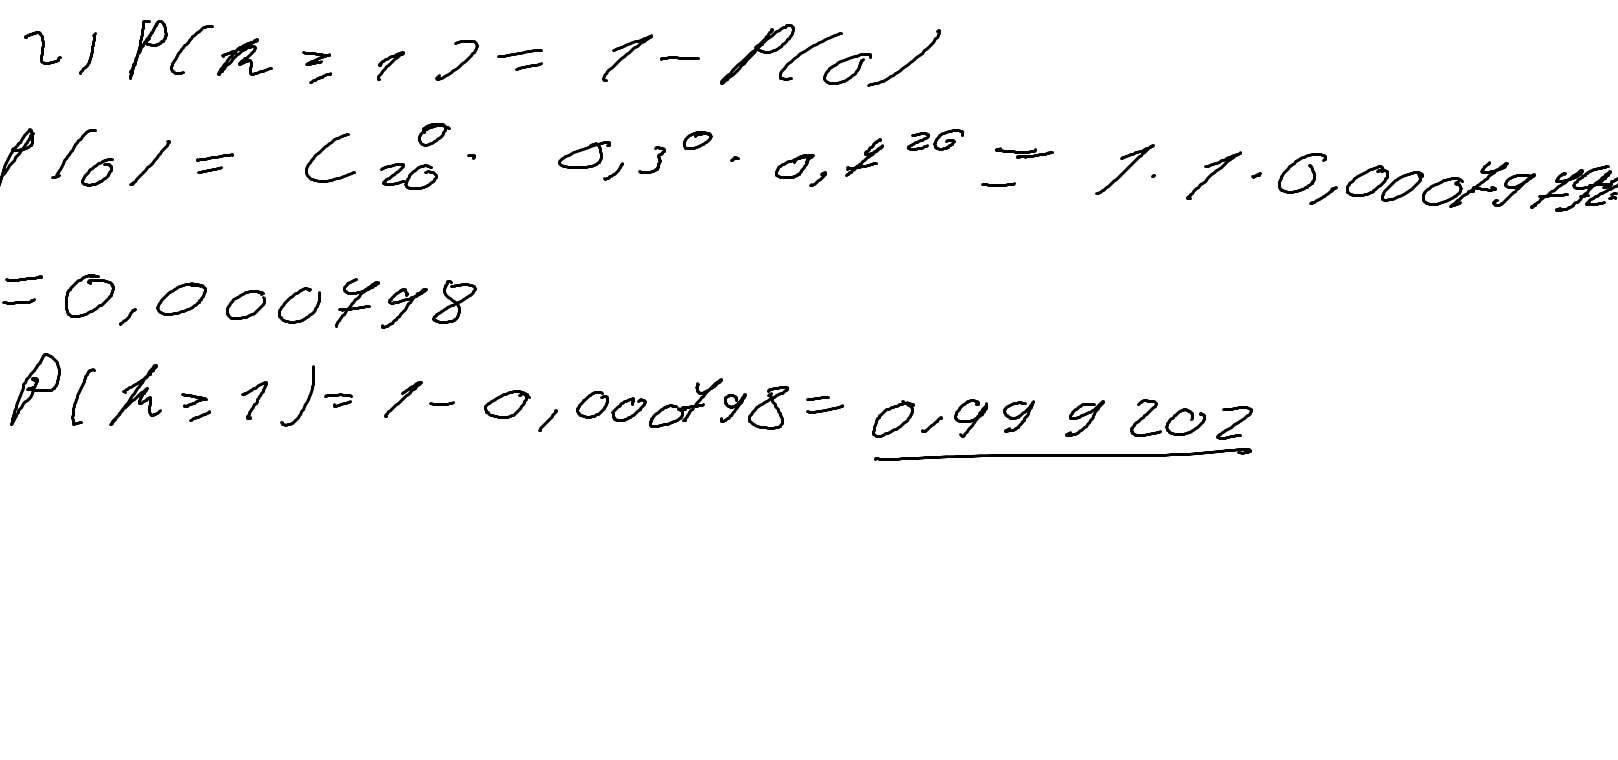 2) P(k ≥ 1) = 1 - P(0)
P(0) = C₂₀⁰ · 0,3⁰ · 0,7²⁰ = 1 · 1 · 0,00079792
= 0,000798
P(k ≥ 1) = 1 - 0,000798 = 0,999202